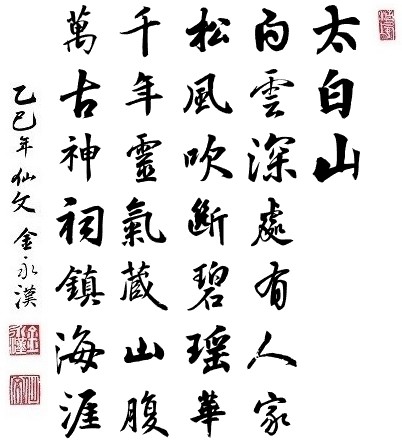 太白山
白雲深處有人家
松風吹斷碧瑤華
千年靈氣蔵山腹
萬古神祠鎮海涯
乙巳年 仙文 金永漢